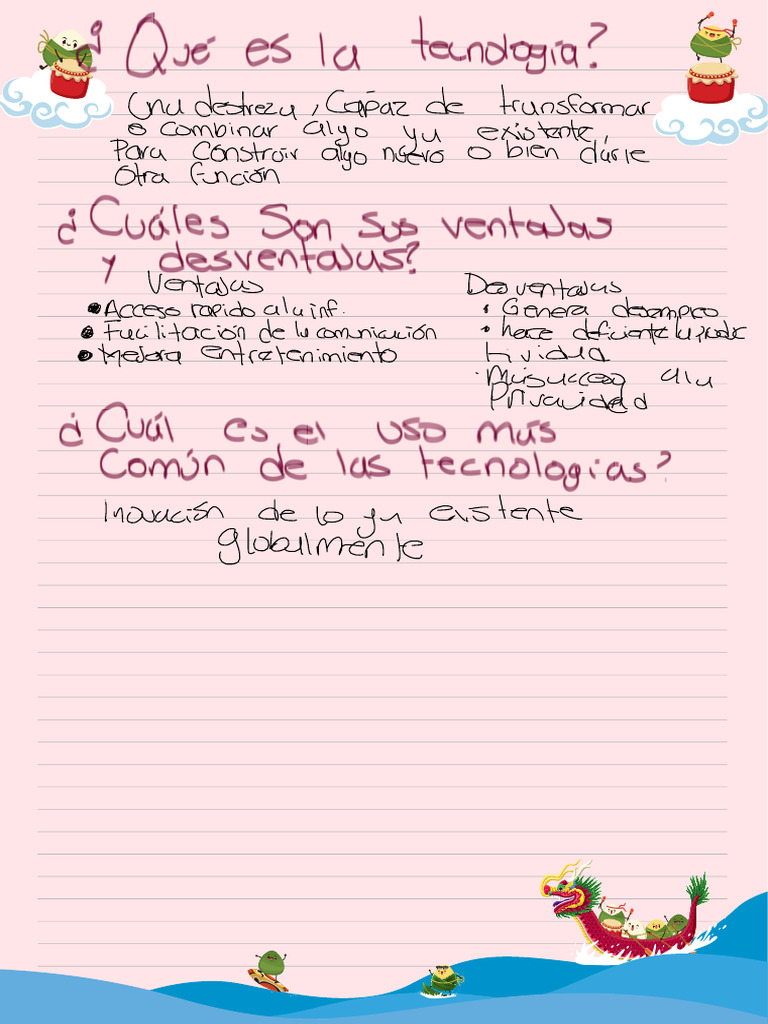 ¿Qué es la tecnología?
Una destreza, Capaz de transformar
o combinar algo ya existente,
Para Construir algo nuevo o bien darle
Otra función
¿Cuáles Son sus ventajas
y desventajas?
Ventajas
• Acceso rapido a la inf.
• Facilitación de la comunicación
• Mejora entretenimiento
Desventajas
• Genera desempleo
• hace deficiente la produc
tividad
al a
Privacidad
¿Cuál es el uso más
Común de las tecnologías?
Inovación de lo ya existente
globalmente